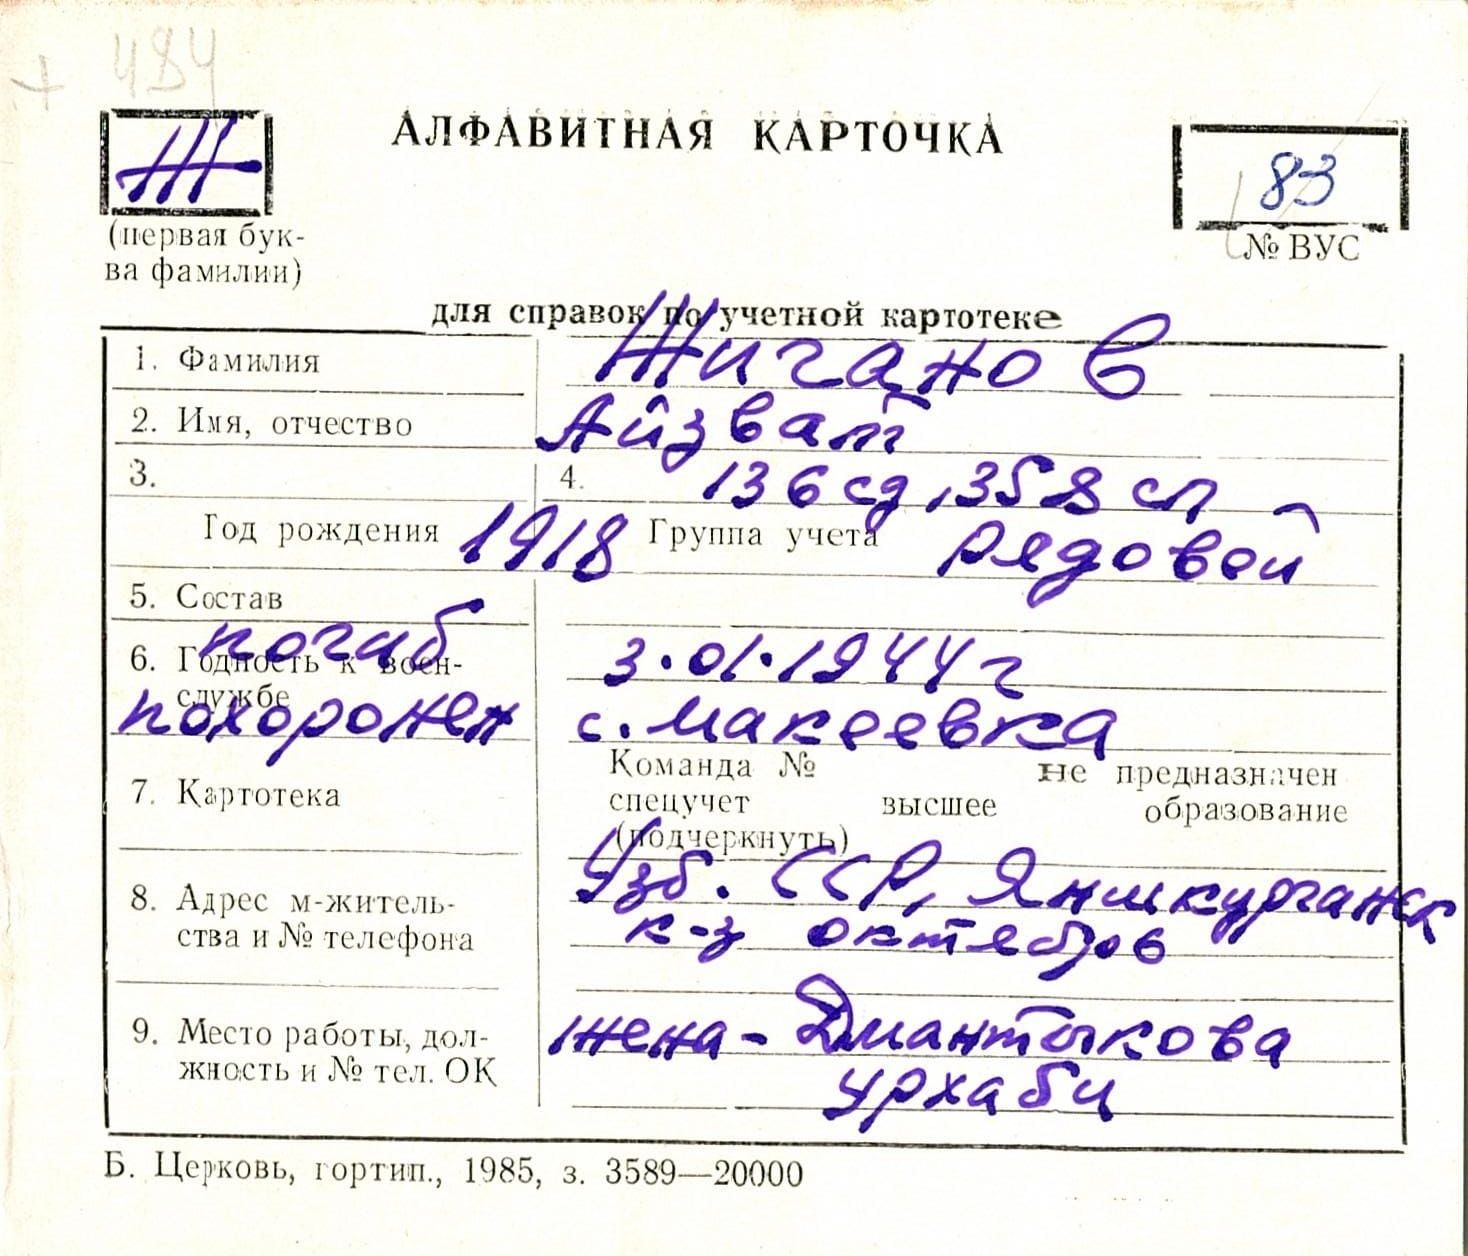 + 484
Ж
АЛФАВИТНАЯ КАРТОЧКА
83
(первая бук-
ва фамилии)
№ ВУС
для справок по учетной картотеке
1. Фамилия Жиганов
2. Имя, отчество Айзват
3. 4. 136 сд, 358 сп
Год рождения 1918 Группа учета рядовой
5. Состав
погиб 3.01.1944 г
6. Годность к воен-
службе
похоронен с. Макеевка
7. Картотека
Команда № не предназначен
спецучет высшее образование
(подчеркнуть)
8. Адрес м-житель-
ства и № телефона
Узб. ССР, Яншкурганск
к-з октябров
9. Место работы, дол-
жность и № тел. ОК
жена - Дмантыкова
Урхаби
Б. Церковь, гортип., 1985, з. 3589—20000